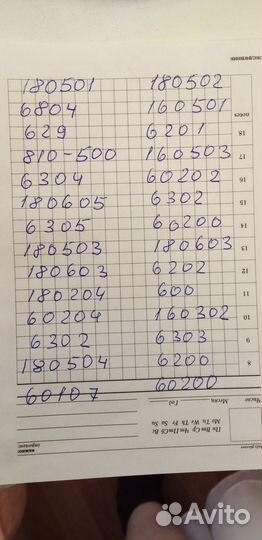 180501 180502
6804 160501
629 6201
810-500 160503
6304 60202
180605 6302
6305 60200
180503 180603
180603 6202
180204 600
60204 160302
6302 6303
180504 6200
60107 60200
notes
18
17
16
15
14
13
12
11
10
9
8
Число Месяц Год
Пн Вт Ср Чт Пт Сб Вс
Mo Tu We Th Fr Sa Su
важно:
important:
daily planner
ежедневник
Avito